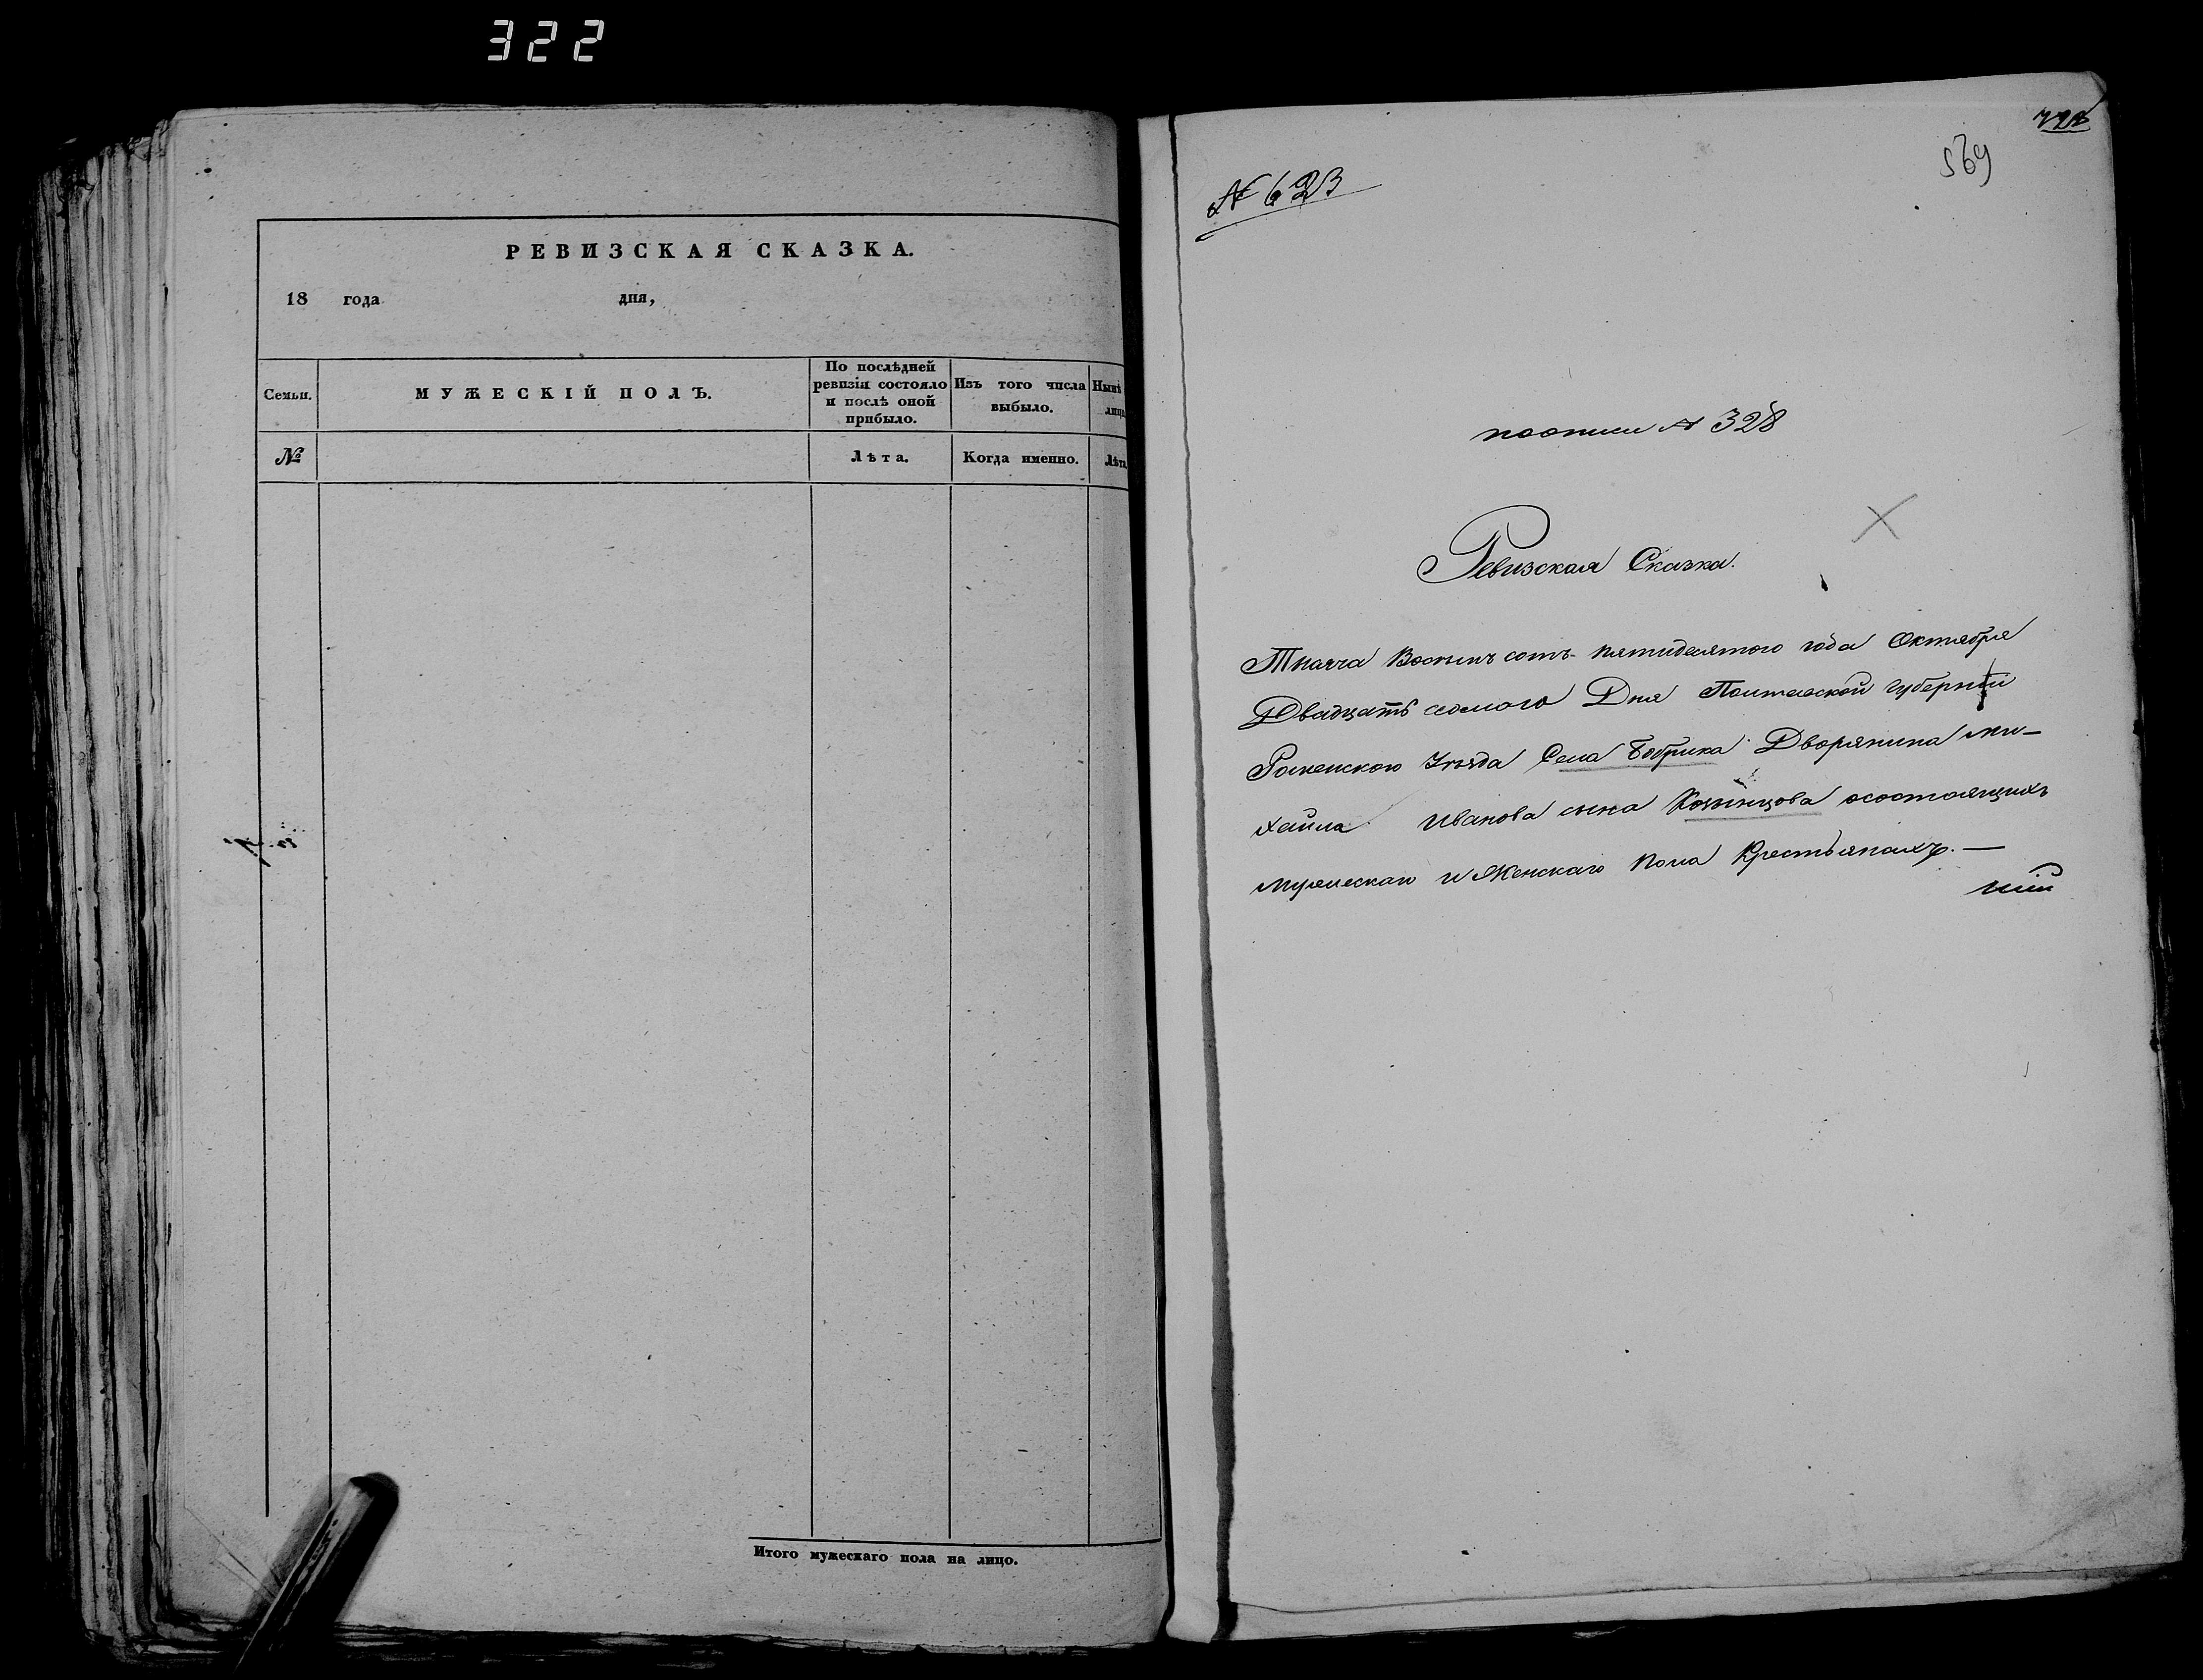 322
РЕВИЗСКАЯ СКАЗКА.
18 года дня,
Семьи.
МУЖЕСКІЙ ПОЛЪ.
По послѣдней
ревизіи состояло
и послѣ оной
прибыло.
Изъ того числа
выбыло.
Нынѣ
лицо
№
Лѣта.
Когда именно.
Лѣта
Итого мужескаго пола на лицо.
569
№ 623
поописи № 328
Ревизская Сказка.
Тысяча Восемъ сотъ пятидесятого года Октября
Двадцать седмого Дня Полтавской губерніи
Роменского Уѣзда Села Бобрика Дворянина Ми-
хайла Иванова сына осостоящихъ
мужескаго и Женскаго пола Крестьянахъ. —